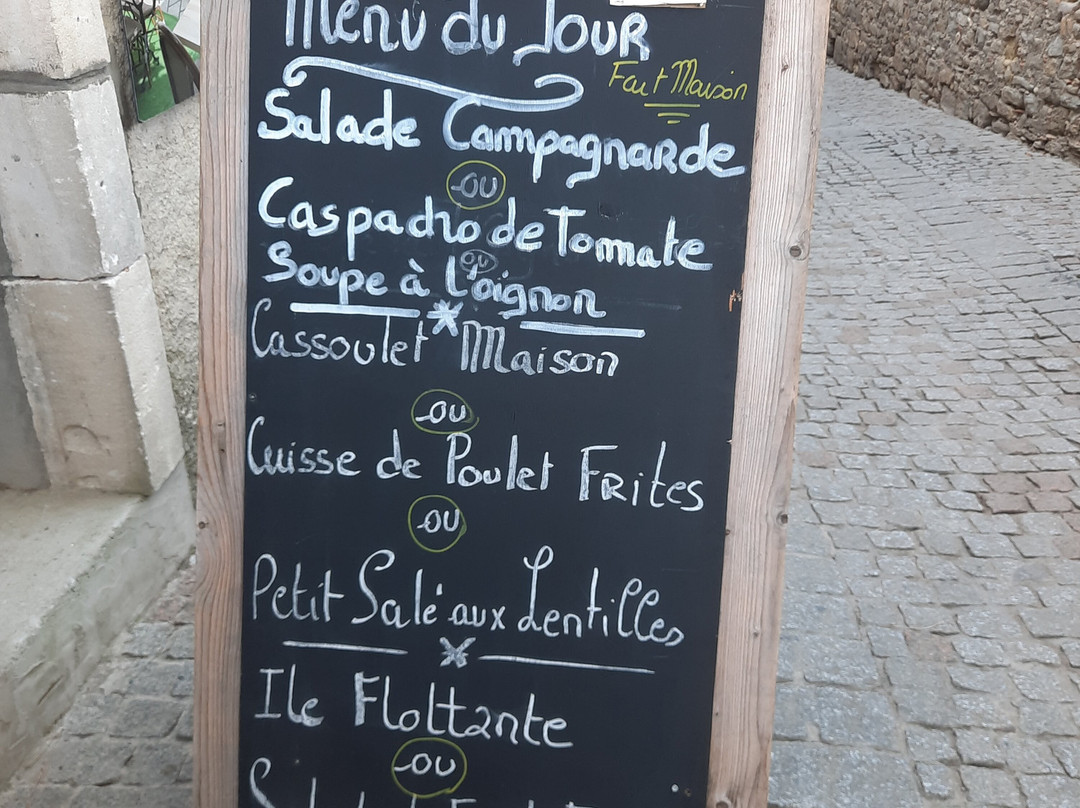 Menu du Jour
Fait Maison
Salade Campagnarde
ou
Caspacho de Tommate
ou
Soupe à l'oignon
Cassoulet Maison
ou
Cuisse de Poulet Frites
ou
Petit Salé aux Lentilles
Ile Flottante
ou